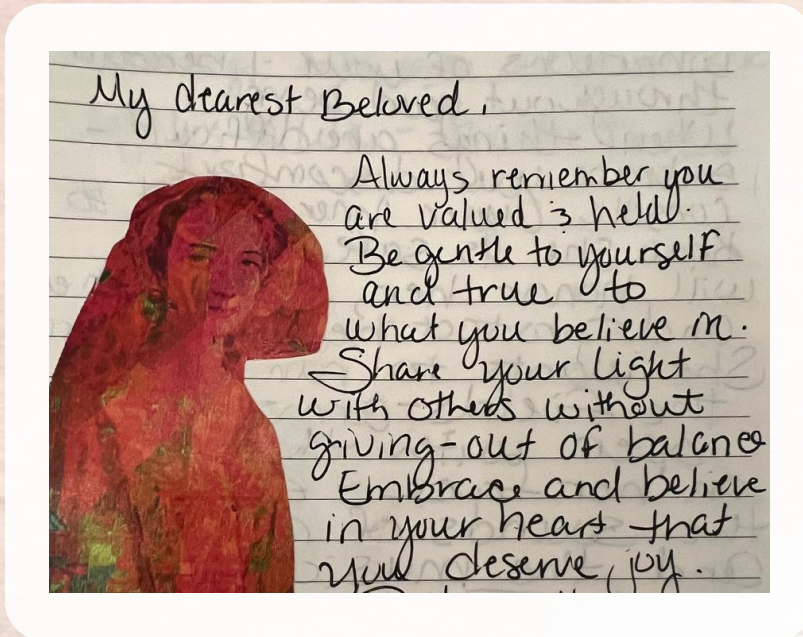 My dearest Beloved,
Always remember you
are valued & held.
Be gentle to yourself
and true to
what you believe in.
Share your light
with others without
giving-out of balance
Embrace and believe
in your heart that
you deserve joy.